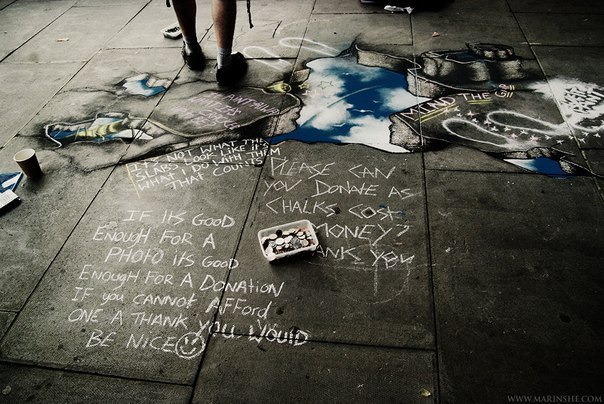 MIND THE
IT'S NOT WHAT THE
SLABS LOOK LIKE IT'S
WHAT I DO WITH THEM
THAT COUNTS
PLEASE CAN
YOU DONATE AS
CHALKS COST
MONEY?
ANK YOU
IF ITS GOOD
ENOUGH FOR A
PHOTO ITS GOOD
ENOUGH FOR A DONATION
IF YOU CANNOT AFFORD
ONE A THANK YOU WOULD
BE NICE
WWW.MARINSHE.COM